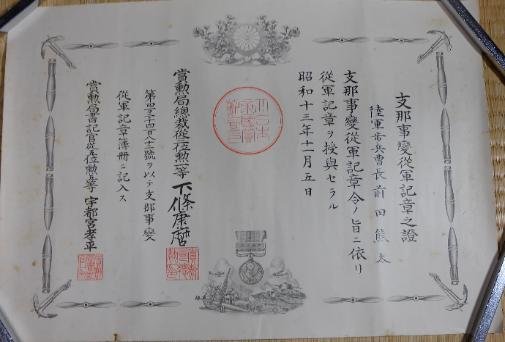 支那事變從軍記章之證
陸軍兵曹長 前田熊太
支那事變從軍記章令ノ旨ニ依リ
從軍記章ヲ授與セラル
昭和十三年十一月五日
賞勲局總裁從位勲一等 下條康麿
第四十四百八十三號ヲ以テ支那事變
從軍記章簿册ニ記入ス
賞勲局書記官位勲等 宇都宮孝平